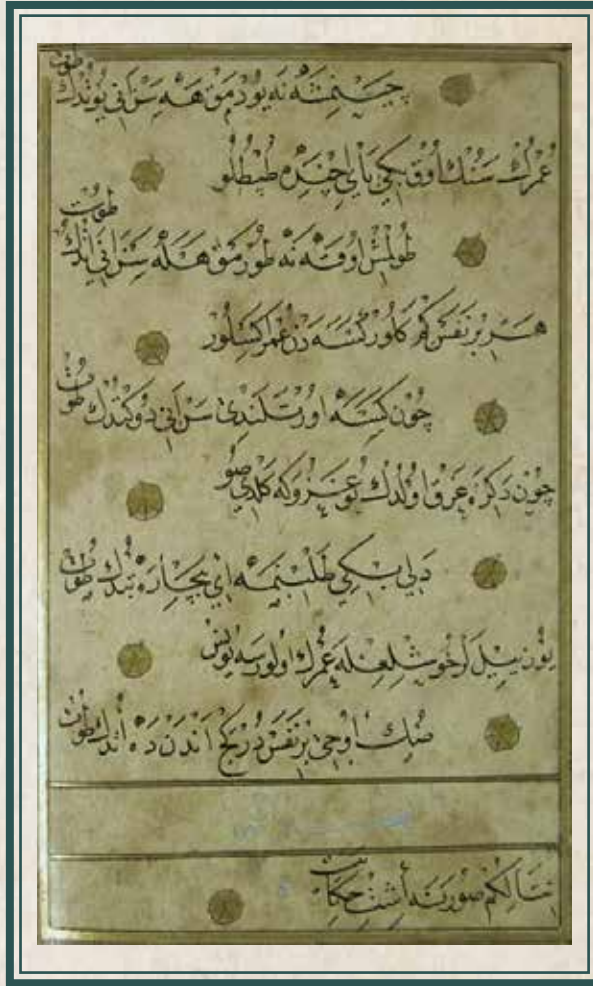 چينمشه نه يودمق هله سن اني يوتدك طوت
عمرك سنك اوق بكي ياي اچنده طپطلو
طولمش اوقه نه طورمق هله سن اني اتدك طوت
هر بر نفس كم كلور كسه دن عمر اكسلور
چون كسه اورتلندي سن اني دوكتدك طوت
چون دكزه غرق اولدك بوغزوكه كلدي صو
دلي بكي طلبنمه اي بچاره بتدك طوت
يوز ييللر خوشلغله عمرك اولورسه يونس
صك اوجي بر نفس در كچ اندن ده اتدك طوت
صورتنه حكايت